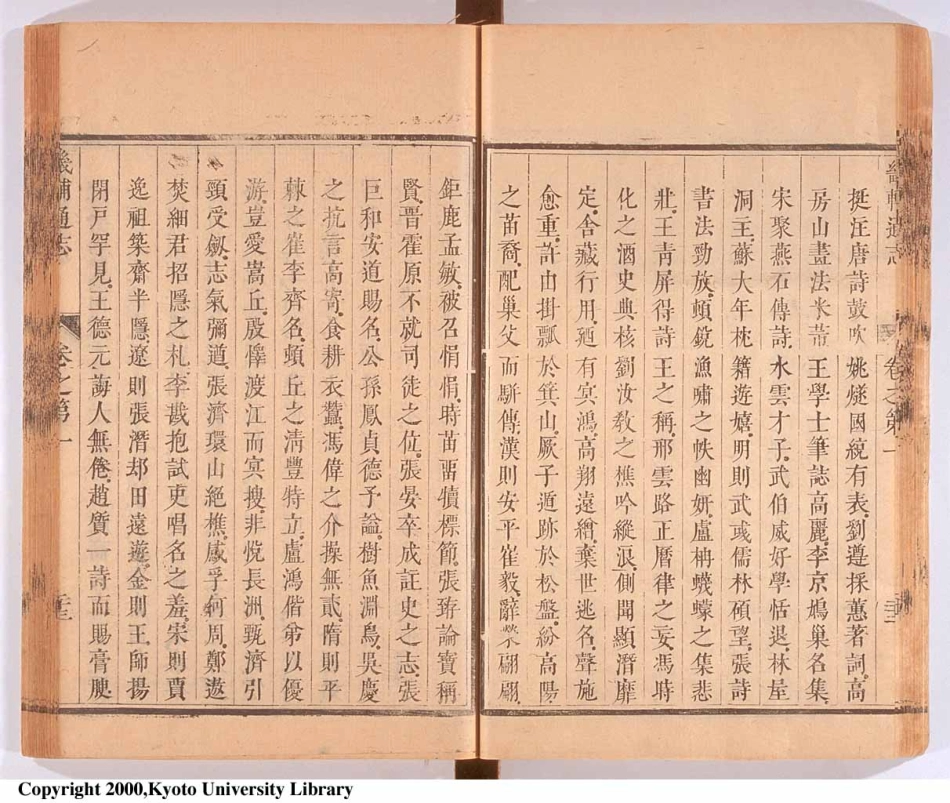 挺汪唐詩鼓吹姚燧國統有表劉遵採蕙著詞高
房山畫法米芾王學士筆誌高麗李京鳩巢名集
宋聚燕石傳詩水雲才子武伯威好學恬退林屋
洞主蘇大年枕籍遊嬉明則武彧儒林碩望張詩
書法勁放頓銳漁嘯之帙幽妍盧柟蠛蠓之集悲
壯王青屏得詩王之稱邢雲路正曆律之妄馮時
化之酒史典核劉汝敎之樵吟縱
側聞顯濟靡
定舍藏行用廼有冥鴻高翔遠繒棄世逃名聲施
愈重許由掛瓢於箕山厥子遁跡於松盤紛高陽
之苗裔配巢父而駢傳漢則安平崔毅辭
翩翩
鉅鹿孟敏被召悁悁時苗畱犢標簡張臶論寶稱
賢晋霍原不就司徒之位張晏卒成註史之志張
巨和安道賜名公孫鳳貞德予諡樹魚淵鳥吳慶
之抗言高寄食耕衣蠶馮偉之介操無貳隋則平
棘之崔李齊名頓丘之清豐特立盧鴻偕弟以優
游豈愛嵩丘殷
渡江而冥搜非悅長洲甄濟引
頸受劒志氣彌遒張濟環山絕樵感孚何周鄭遨
焚細君招隱之札李戡抱試吏唱名之羞宋則賈
逸祖築齋半隱遼則張潛却田遠遊金則王師揚
閉戶罕見王德元誨人無倦趙質一詩而賜膏腴
畿輔通志
卷之第一
Copyright 2000,Kyoto University Library